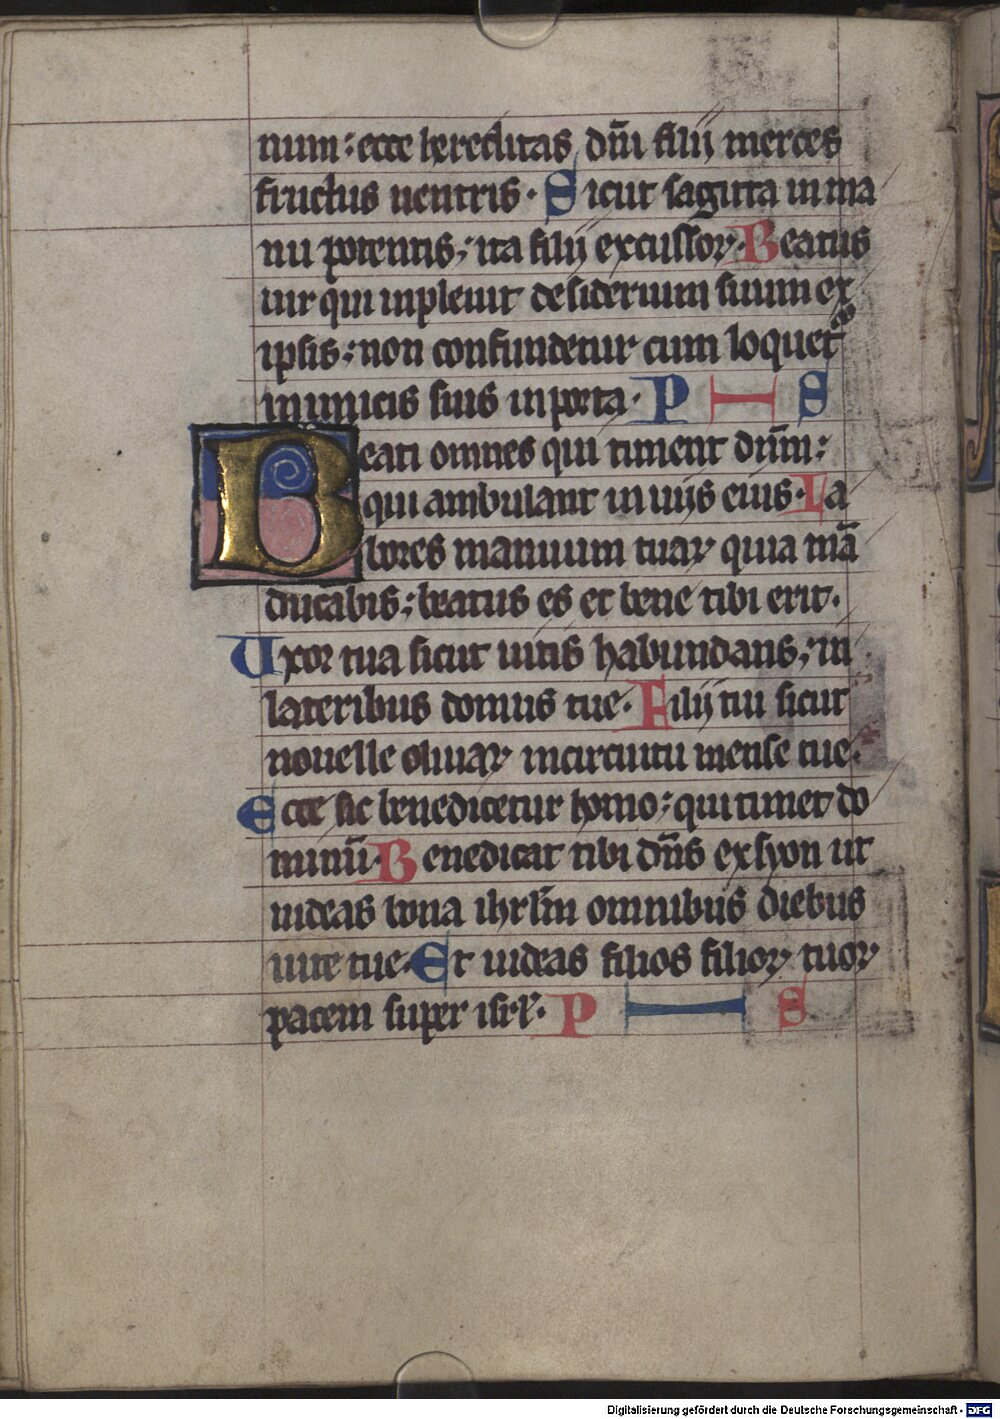 num: ecce hereditas dn̄i filij merces
fructus uentris. Sicut sagitta in ma
nu potentis; ita filij excussoꝝ. Beatus
uir qui inpleuit desiderium suum ex
ipsis: non confundetur cum loquet᷑
inimicis suis in porta. P S
Beati omnes qui timent dn̄m:
qui ambulant in uijs eius. La
bores manuum tuaꝝ quia mā
ducabis; beatus es et bene tibi erit.
Uxor tua sicut uitis habundans; in
lateribus domus tue. Filij tui sicut
nouelle oliuaꝝ in circuitu mense tue.
Ecce sic benedicetur homo; qui timet do
minū. Benedicat tibi dn̄s ex syon ut
uideas bona ihrl̄m omnibus diebus
uite tue. Et uideas filios filioꝝ tuoꝝ
pacem super isrl̄. P S
Digitalisierung gefördert durch die Deutsche Forschungsgemeinschaft - DFG